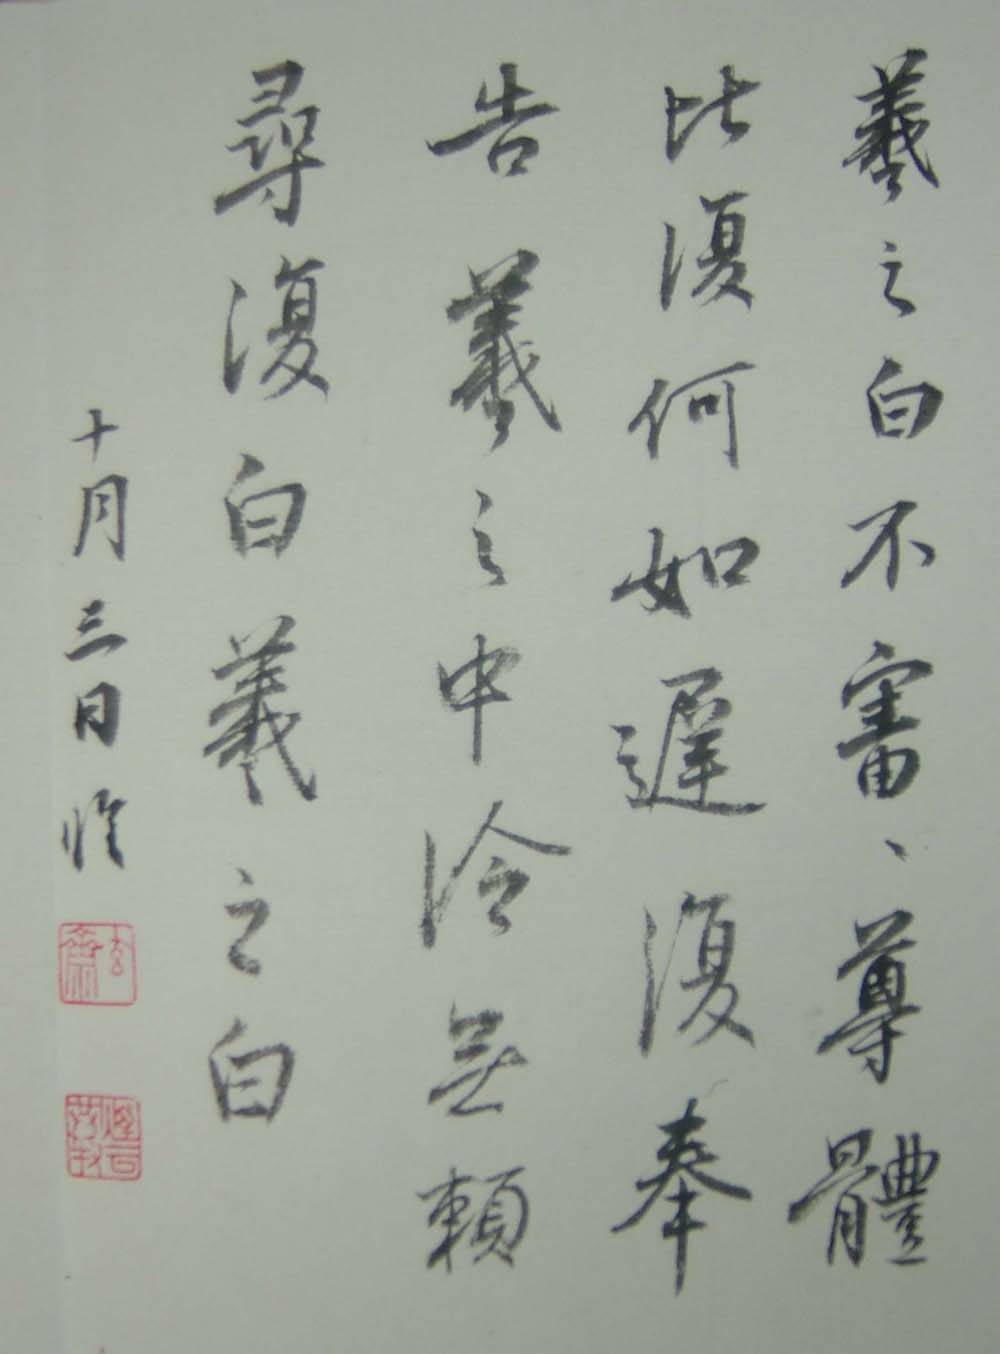 羲之白不審、尊體
比復何如遲復奉
告羲之中冷無賴
尋復白羲之白
十月三日